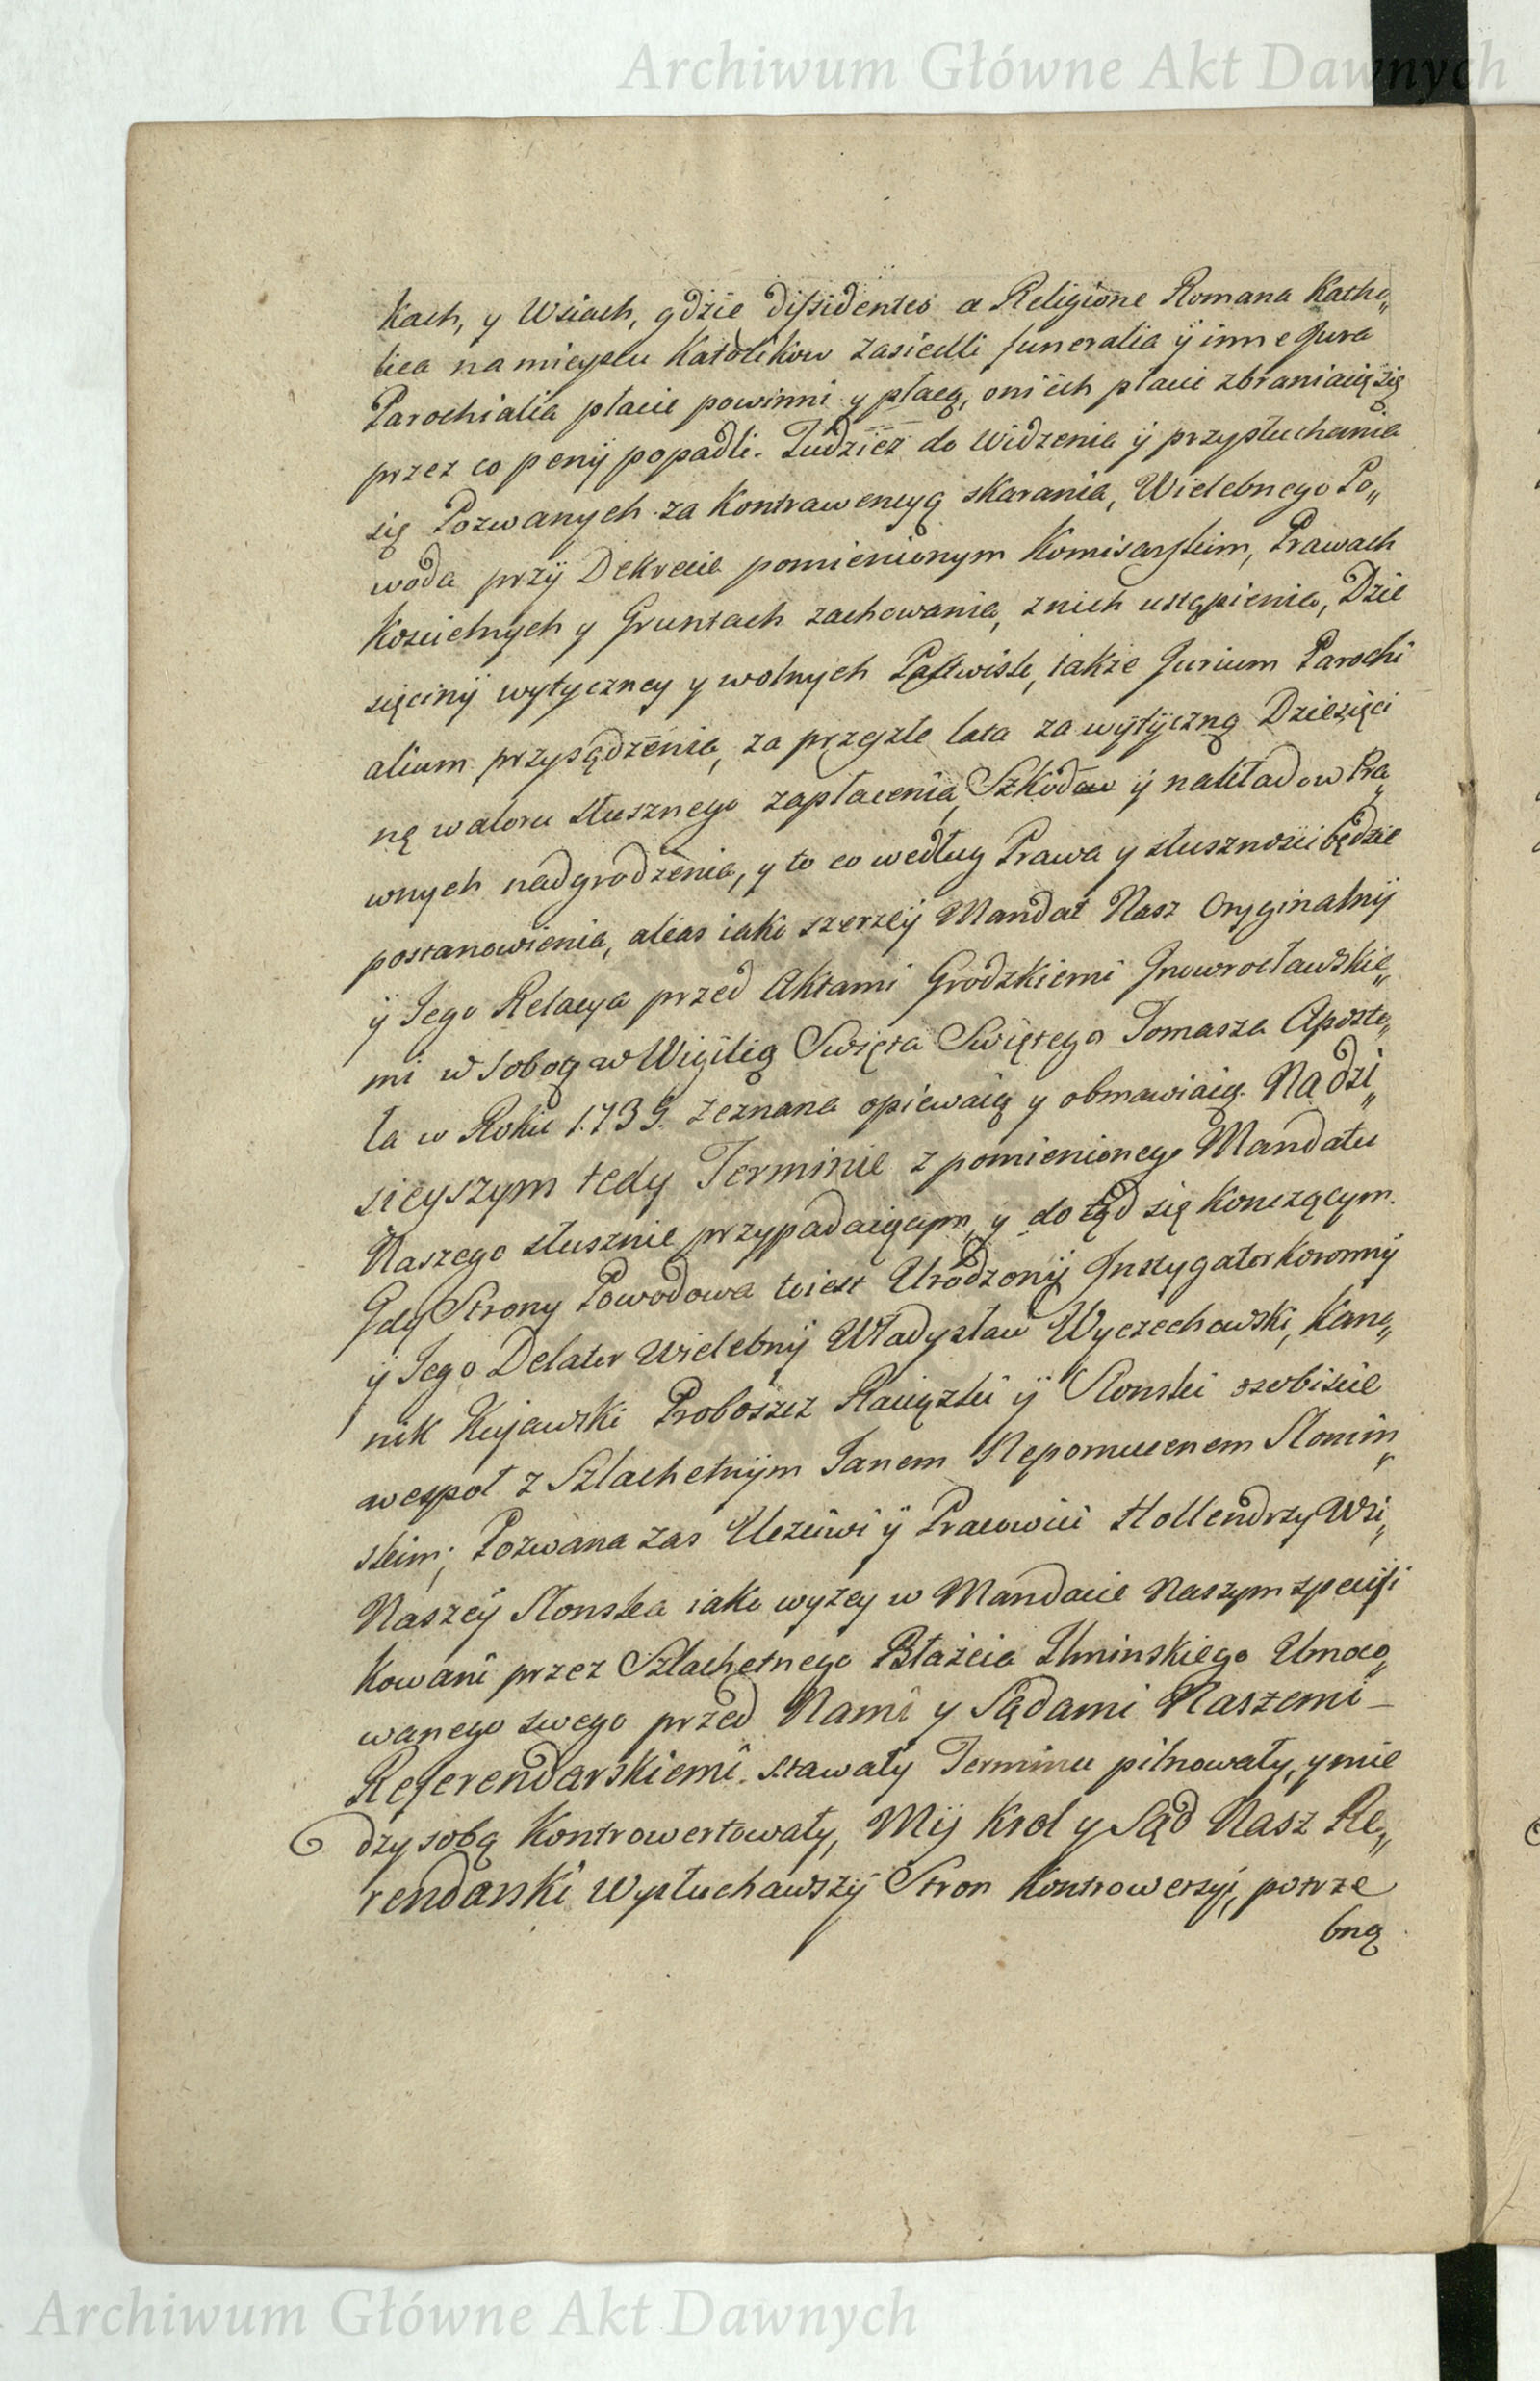 Archiwum Główne Akt Dawnych
kach, y Wsiach, gdzie dissidentes a Religione Romana Katho„
lica na mieyscu Katolikow zasiedli funeralia ÿ inne Jura
Parochialia płacic powinni y płacą, oni ich płacic zbraniaią się
przez co penÿ popadli. Tudziesz do widzenia ÿ przysłuchania
się Pozwanych za Kontrawencyą skarania, Wielebnego Po„
woda przÿ Dekrecie pomienionym Komisarskim, Prawach
Koscielnych y Gruntach zachowania, znich ustąpienia, Dzie
sięcinÿ wytyczney y wolnych Pastwisk, także Jurium Parochi
alium przysądzenia, za przeszłe lata za wÿtÿczną Dziesięci
nę waloru słusznego zapłacenia, Szkodow ÿ nakładow Pra„
wnych nadgrodzenia, y to co według Prawa y słusznosci będzie
postanowienia, alias iako szerzeÿ Mandat Nasz Oryginalnÿ
ÿ Jego Relacya przed Aktami Grodzkiemi Jnowrocławskie„
mi w Sobotę w Wigilią Swięta Swiętego Tomasza Aposto„
ła w Roku 1739. zeznana opiewaią y obmawiaią. Na dzi„
sieyszym tedy Terminie z pomienionego Mandatu
Naszego słusznie przypadaiącym, y do tąd się konczącym.
Gdy Strony Powodowa toiest Urodzonÿ Jnstygator Koronnÿ
ÿ Jego Delator Wielebnÿ Władysław Wyczechowski, Kano„
nik Kujawski Proboszcz Raciązki ÿ Słonski osobiscie
wespoł z Szlachetnÿm Janem Nepomucenem Słomin„
skim; Pozwana zas Uczciwi ÿ Pracowici Hollendrzy Wsi„
Naszeÿ Słonska iako wyzey w Mandacie Naszym specifi
kowani przez Szlachetnego Błażeia Ilminskiego Umoco„
wanego swego przed Nami y Sądami Naszemi –
Referendarskiemi. stawały Terminu pilnowały, y mie
dzy sobą Kontrowertowały, Mÿ Krol y Sąd Nasz Re„
rendarski Wysłuchawszÿ Stron Kontrowersyi, potrze
bną
Archiwum Główne Akt Dawnych